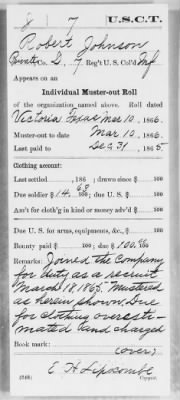 J 7 U.S.C.T.
Robert Johnson
Pvt., Co. G, 7 Reg't U. S. Col'd Inf.
Appears on an
Individual Muster-out Roll
of the organization named above. Roll dated
Victoria Texas Mar 10, 1866.
Muster-out to date Mar 10, 1866.
Last paid to Dec 31, 1865
Clothing account:
Last settled , 186 ; drawn since $ 100
Due soldier $ 14.68 100; due U. S. $ 100
Am't for cloth'g in kind or money adv'd $ 100
Due U. S. for arms, equipments, &c., $ 100
Bounty paid $ 100; due $ 100.00 100
Remarks: Joined the Company
for duty as a recruit
March 18, 1865. Mustered
as herein shown. Due
for clothing overesti-
mated and charged
Book mark:
(over)
E H Lipscombe
(246) Copyist.